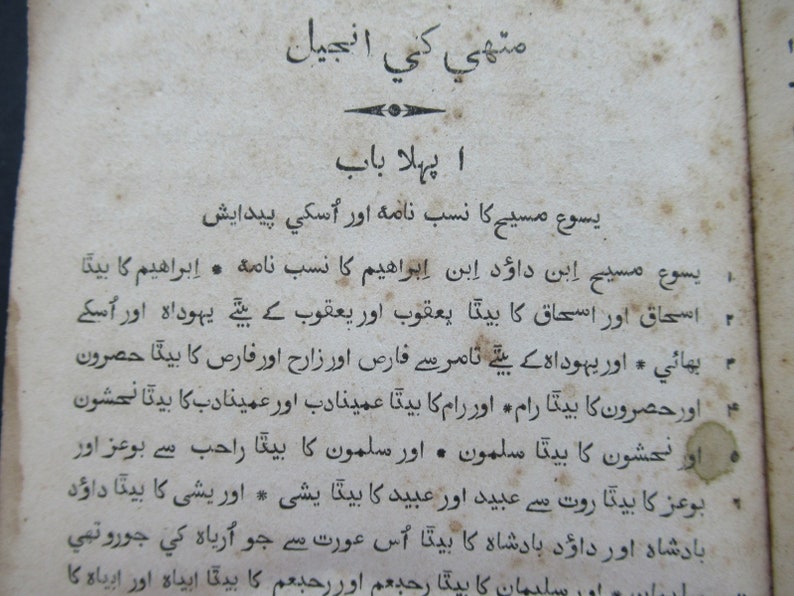 متھي کي انجيل
۱ پہلا باب
يسوع مسيح کا نسب نامہ اور اُسکي پيدايش
۱ يسوع مسيح اِبن داؤد اِبن اِبراهيم کا نسب نامہ * اِبراهيم کا بيٹا
۲ اسحاق اور اسحاق کا بيٹا يعقوب اور يعقوب کے بيٹے يہوداہ اور اُسکے
۳ بھائي * اور يہوداہ کے بيٹے تامر سے فارص اور زارح اور فارص کا بيٹا حصرون
۴ اور حصرون کا بيٹا رام * اور رام کا بيٹا عمينادب اور عمينادب کا بيٹا نحشون
۵ اور نحشون کا بيٹا سلمون * اور سلمون کا بيٹا راحب سے بوعز اور
۶ بوعز کا بيٹا روت سے عبيد اور عبيد کا بيٹا يشی * اور يشی کا بيٹا داؤد
بادشاہ اور داؤد بادشاہ کا بيٹا اُس عورت سے جو اُرياہ کي جورو تھي
سليمان * اور سليمان کا بيٹا رحبعم اور رحبعم کا بيٹا ابياہ اور ابياہ کا